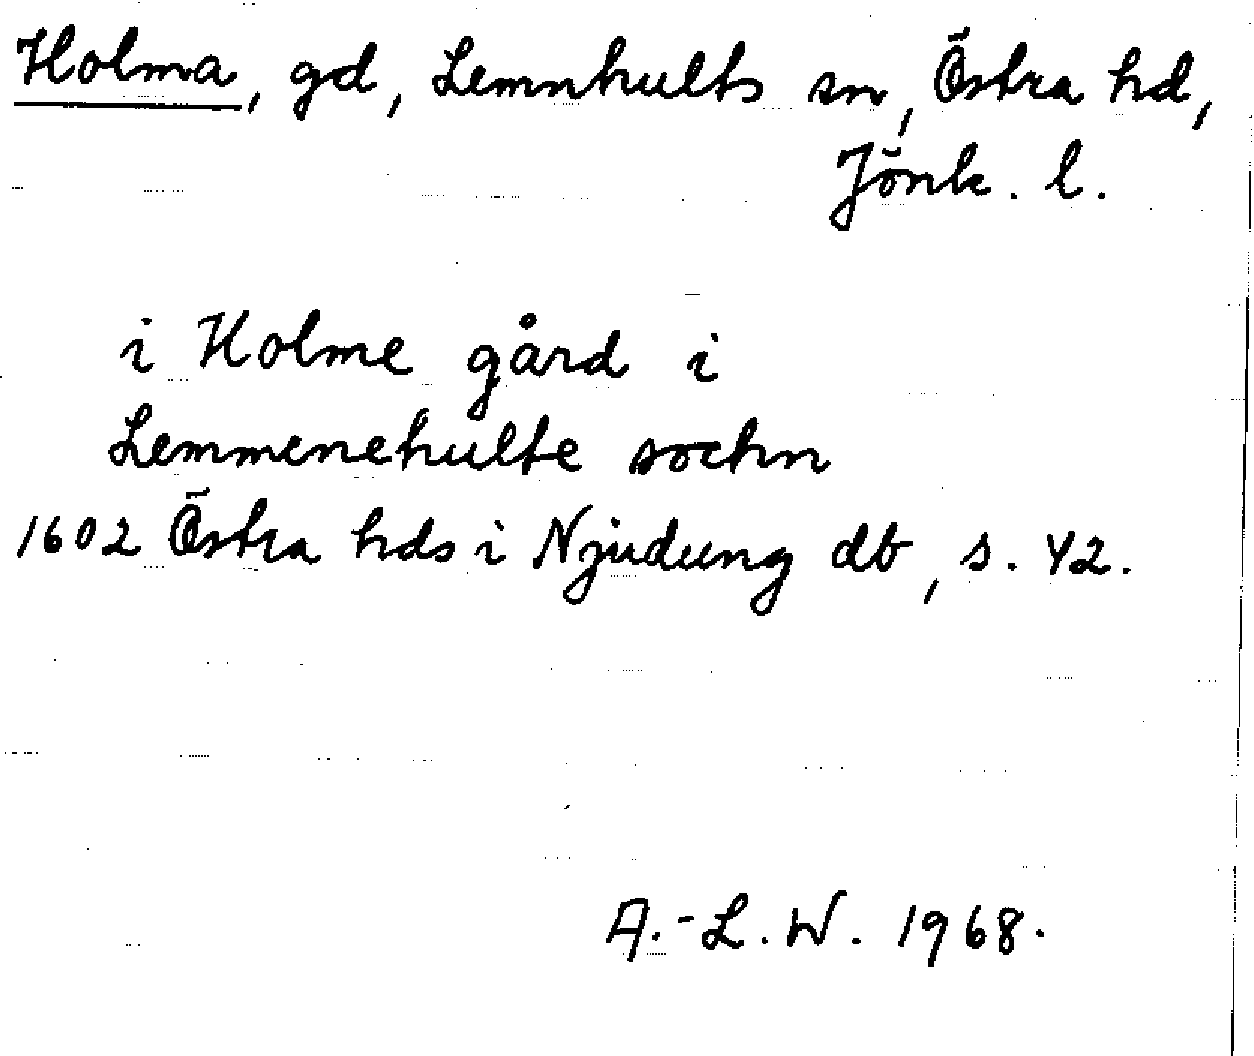 Holma, gd, Lemnhults sn, Östra hd,
Jönk. l.
i Holme gård i
Lemmenehulte sochn
1602 Östra hds i Njudung db, s. 42.
A.-L. W. 1968.